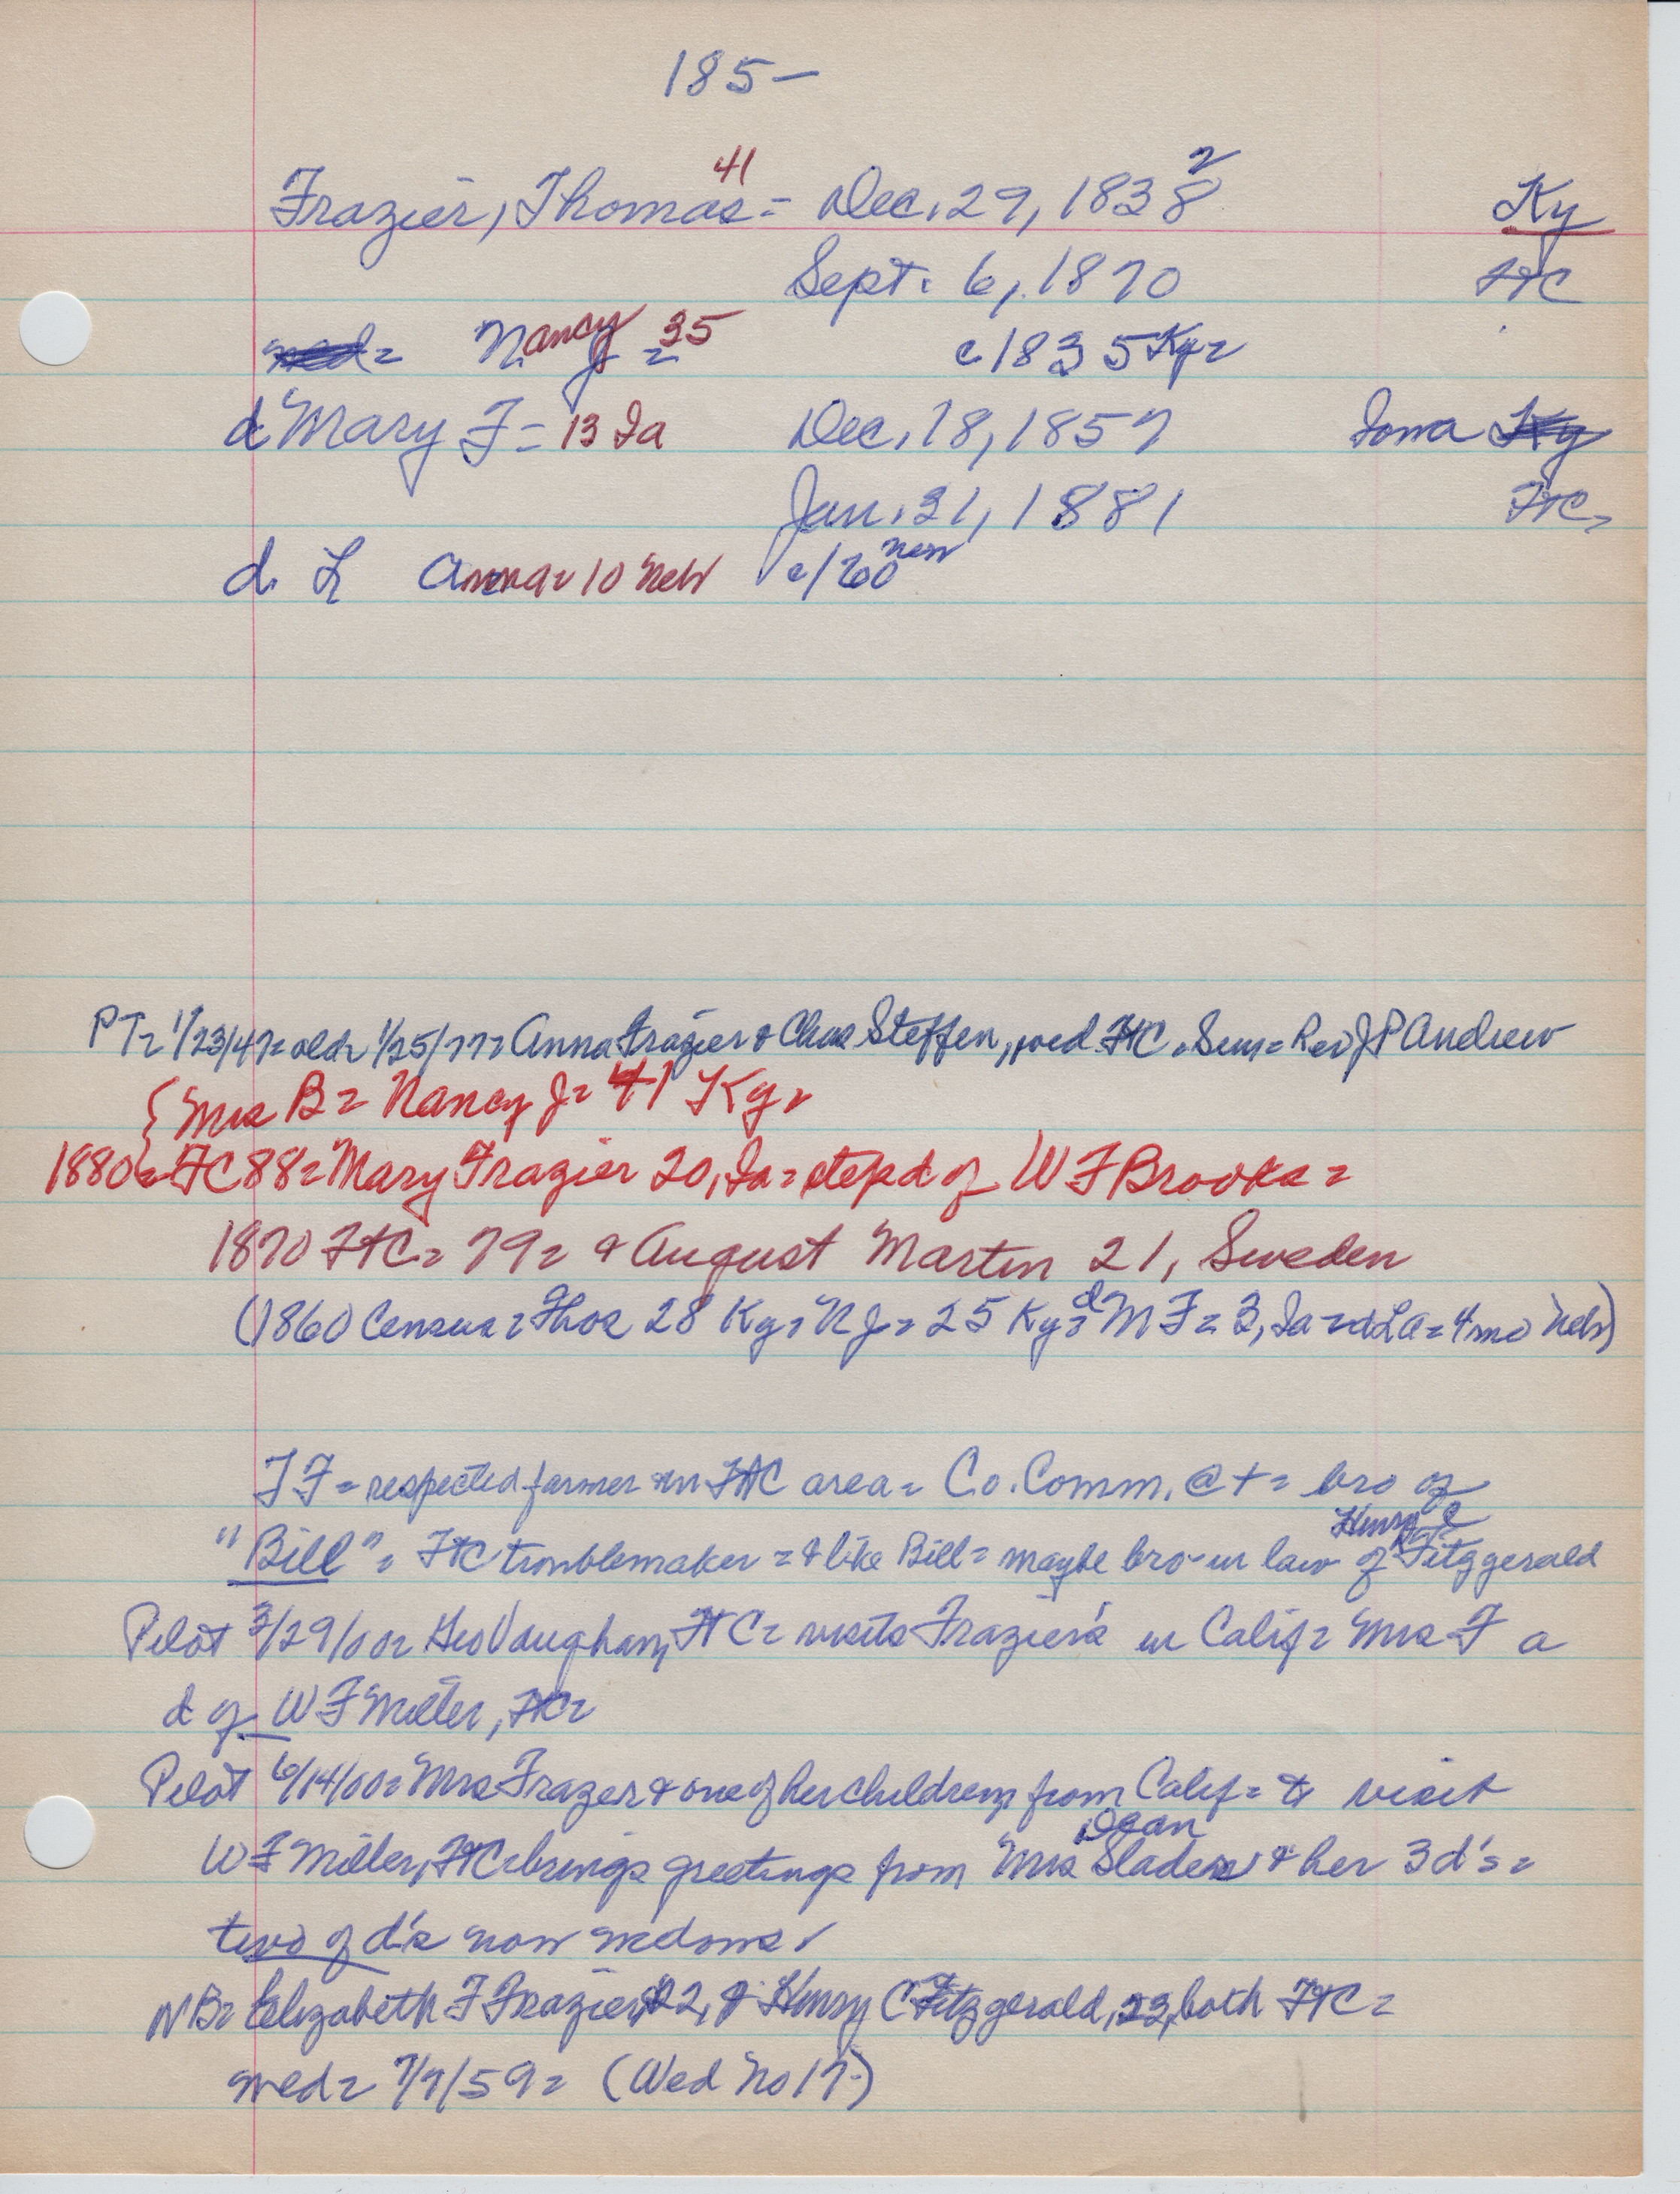 185-
Frazier, Thomas 41 = Dec. 29, 1838 2 Ky
Sept. 6, 1870 FtC
= Nancy J = 35 c 1835 Ky =
d Mary F = 13 Ia Dec. 18, 1857 Iowa Ky
Jan. 31, 1881 FtC =
d. L Anna = 10 Neb c/60 Neb
PT = 1/23/47 = old = 1/25/77 = Anna Frazier & Chas Steffen, wed FtC = Rev J P Andrew
{ Mrs B = Nancy J = 41 Ky =
1880 = FC 88 = Mary Frazier 20, Ia = stepd of W F Brooks =
1870 FtC = 79 = & August Marten 21, Sweden
(1860 Census = Thos 28 Ky = N J = 25 Ky = d M F = 3, Ia = d L A = 4 mo Neb)
T F = respected farmer in FtC area = Co. Comm. @ + = bro of
"Bill" = FtC troublemaker = & like Bill = maybe bro-in law of Henry C Fitzgerald
Pilot 3/29/00 = Geo Vaughan, FtC = visits Frazier's in Calif = Mrs F a
d of W F Miller, FtC =
Pilot 6/14/00 = Mrs Frazer & one of her children from Calif = to visit
W F Miller, FtC = brings greetings from Mrs Dean Sladen & her 3 d's =
two of d's now widows.
NB = Elizabeth F Frazier, 22, & Henry C Fitzgerald, 23, both FtC =
wed = 7/7/59 = (Wed No 17)